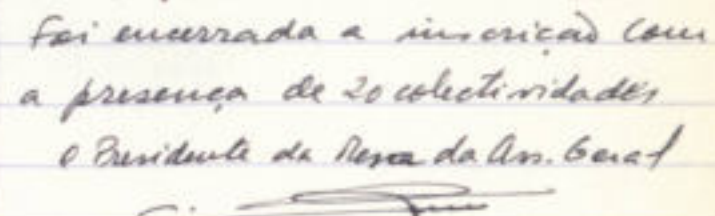 Foi encerrada a inscrição com
a presença de 20 colectividades
O Presidente da Mesa da Ass. Geral